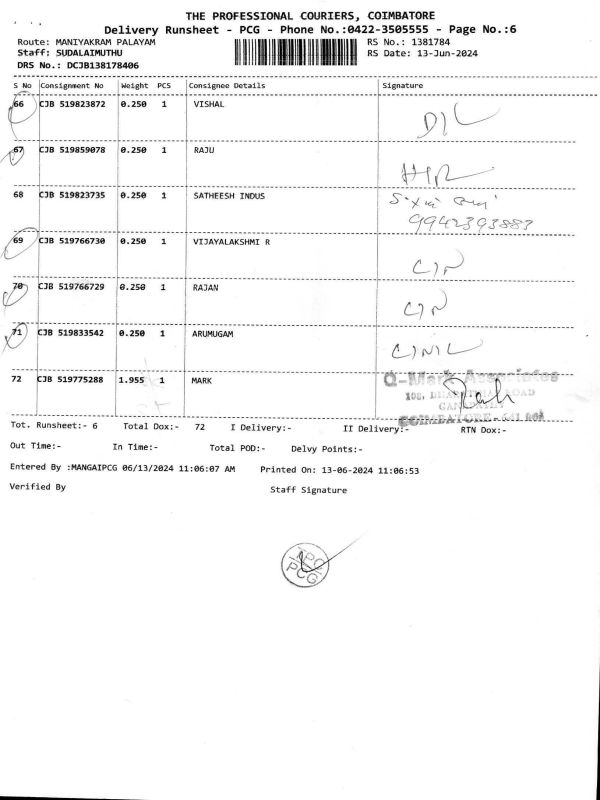 THE PROFESSIONAL COURIERS, COIMBATORE
Delivery Runsheet - PCG - Phone No.:0422-3505555 - Page No.:6
Route: MANIYAKRAM PALAYAM RS No.: 1381784
Staff: SUDALAIMUTHU RS Date: 13-Jun-2024
DRS No.: DCJB138178406
S No Consignment No Weight PCS Consignee Details Signature
66 CJB 519823872 0.250 1 VISHAL
D/L
67 CJB 519859078 0.250 1 RAJU
68 CJB 519823735 0.250 1 SATHEESH INDUS
9942393883
69 CJB 519766730 0.250 1 VIJAYALAKSHMI R
70 CJB 519766729 0.250 1 RAJAN
71 CJB 519833542 0.250 1 ARUMUGAM
72 CJB 519775288 1.955 1 MARK
Q-Mark Associates
ROAD
COIMBATORE - 641
Tot. Runsheet:- 6 Total Dox:- 72 I Delivery:- II Delivery:- RTN Dox:-
Out Time:- In Time:- Total POD:- Delvy Points:-
Entered By :MANGAIPCG 06/13/2024 11:06:07 AM Printed On: 13-06-2024 11:06:53
Verified By Staff Signature
PCG